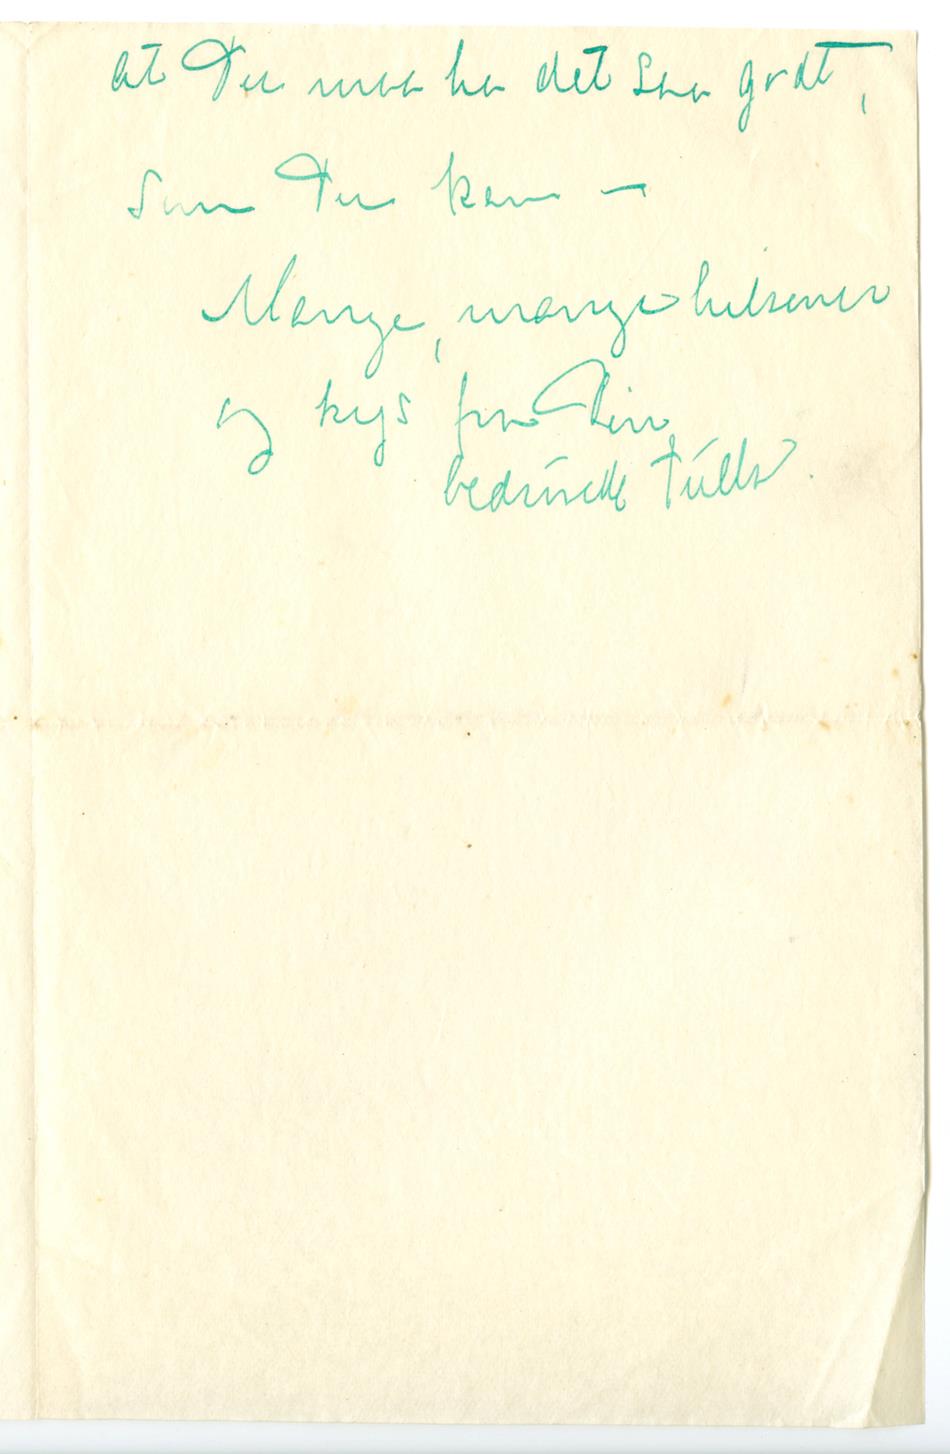 at Du maa ha det saa godt,
som Du kan –
Mange, mange hilsener
og kys fra Din
bedrövede Tulla.